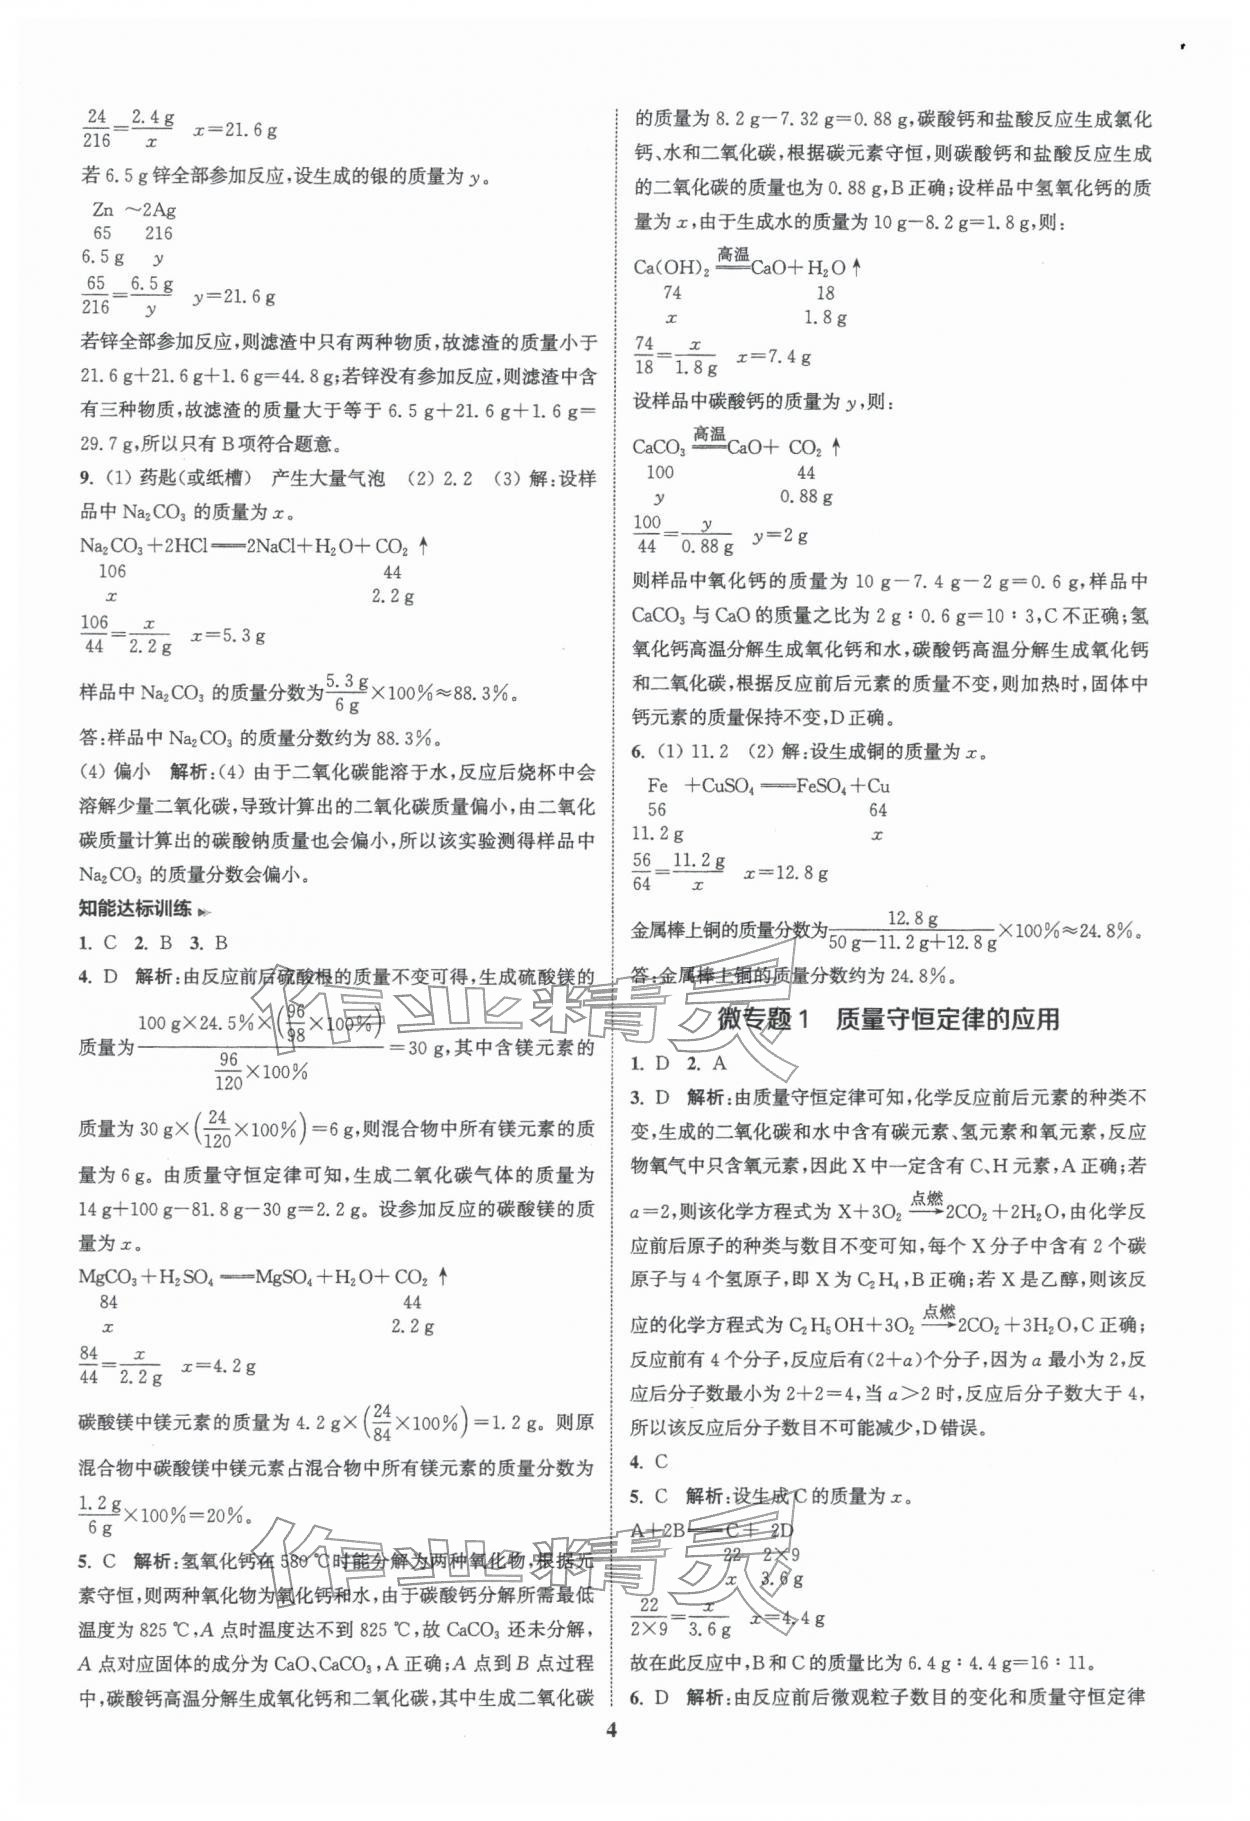 24/216=2.4 g/x x=21.6 g
若 6.5 g 锌全部参加反应,设生成的银的质量为 y。
Zn ～2Ag
65 216
6.5 g y
65/216=6.5 g/y y=21.6 g
若锌全部参加反应,则滤渣中只有两种物质,故滤渣的质量小于
21.6 g+21.6 g+1.6 g=44.8 g;若锌没有参加反应,则滤渣中含
有三种物质,故滤渣的质量大于等于 6.5 g+21.6 g+1.6 g=
29.7 g,所以只有 B 项符合题意。
9. (1) 药匙(或纸槽) 产生大量气泡 (2) 2.2 (3) 解:设样
品中 Na₂CO₃ 的质量为 x。
Na₂CO₃+2HCl══2NaCl+H₂O+CO₂↑
106 44
x 2.2 g
106/44=x/2.2 g x=5.3 g
样品中 Na₂CO₃ 的质量分数为5.3 g/6 g×100%≈88.3%。
答:样品中 Na₂CO₃ 的质量分数约为 88.3%。
(4) 偏小 解析:(4) 由于二氧化碳能溶于水,反应后烧杯中会
溶解少量二氧化碳,导致计算出的二氧化碳质量偏小,由二氧化
碳质量计算出的碳酸钠质量也会偏小,所以该实验测得样品中
Na₂CO₃ 的质量分数会偏小。
知能达标训练
1. C 2. B 3. B
4. D 解析:由反应前后硫酸根的质量不变可得,生成硫酸镁的
质量为 100 g×24.5%×(96/98×100%) / (96/120×100%) =30 g,其中含镁元素的
质量为 30 g×(24/120×100%)=6 g,则混合物中所有镁元素的质
量为 6 g。由质量守恒定律可知,生成二氧化碳气体的质量为
14 g+100 g−81.8 g−30 g=2.2 g。设参加反应的碳酸镁的质
量为 x。
MgCO₃+H₂SO₄══MgSO₄+H₂O+CO₂↑
84 44
x 2.2 g
84/44=x/2.2 g x=4.2 g
碳酸镁中镁元素的质量为 4.2 g×(24/84×100%)=1.2 g。则原
混合物中碳酸镁中镁元素占混合物中所有镁元素的质量分数为
1.2 g/6 g×100%=20%。
5. C 解析:氢氧化钙在 580 ℃时能分解为两种氧化物,根据元
素守恒,则两种氧化物为氧化钙和水,由于碳酸钙分解所需最低
温度为 825 ℃,A 点时温度达不到 825 ℃,故 CaCO₃ 还未分解,
A 点对应固体的成分为 CaO、CaCO₃,A 正确;A 点到 B 点过程
中,碳酸钙高温分解生成氧化钙和二氧化碳,其中生成二氧化碳
的质量为 8.2 g−7.32 g=0.88 g,碳酸钙和盐酸反应生成氯化
钙、水和二氧化碳,根据碳元素守恒,则碳酸钙和盐酸反应生成
的二氧化碳的质量也为 0.88 g,B 正确;设样品中氢氧化钙的质
量为 x,由于生成水的质量为 10 g−8.2 g=1.8 g,则:
Ca(OH)₂ 高温══ CaO+H₂O↑
74 18
x 1.8 g
74/18=x/1.8 g x=7.4 g
设样品中碳酸钙的质量为 y,则:
CaCO₃ 高温══ CaO+ CO₂↑
100 44
y 0.88 g
100/44=y/0.88 g y=2 g
则样品中氧化钙的质量为 10 g−7.4 g−2 g=0.6 g,样品中
CaCO₃ 与 CaO 的质量之比为 2 g∶0.6 g=10∶3,C 不正确;氢
氧化钙高温分解生成氧化钙和水,碳酸钙高温分解生成氧化钙
和二氧化碳,根据反应前后元素的质量不变,则加热时,固体中
钙元素的质量保持不变,D 正确。
6. (1) 11.2 (2) 解:设生成铜的质量为 x。
Fe +CuSO₄══FeSO₄+Cu
56 64
11.2 g x
56/64=11.2 g/x x=12.8 g
金属棒上铜的质量分数为 12.8 g/(50 g−11.2 g+12.8 g)×100%≈24.8%。
答:金属棒上铜的质量分数约为 24.8%。
微专题 1 质量守恒定律的应用
1. D 2. A
3. D 解析:由质量守恒定律可知,化学反应前后元素的种类不
变,生成的二氧化碳和水中含有碳元素、氢元素和氧元素,反应
物氧气中只含氧元素,因此 X 中一定含有 C、H 元素,A 正确;若
a=2,则该化学方程式为 X+3O₂ 点燃→ 2CO₂+2H₂O,由化学反
应前后原子的种类与数目不变可知,每个 X 分子中含有 2 个碳
原子与 4 个氢原子,即 X 为 C₂H₄,B 正确;若 X 是乙醇,则该反
应的化学方程式为 C₂H₅OH+3O₂ 点燃→ 2CO₂+3H₂O,C 正确;
反应前有 4 个分子,反应后有(2+a)个分子,因为 a 最小为 2,反
应后分子数最小为 2+2=4,当 a>2 时,反应后分子数大于 4,
所以该反应后分子数目不可能减少,D 错误。
4. C
5. C 解析:设生成 C 的质量为 x。
A+2B══C+ 2D
22 2×9
x 3.6 g
22/2×9=x/3.6 g x=4.4 g
故在此反应中,B 和 C 的质量比为 6.4 g∶4.4 g=16∶11。
6. D 解析:由反应前后微观粒子数目的变化和质量守恒定律
4
作业精灵
作业精灵